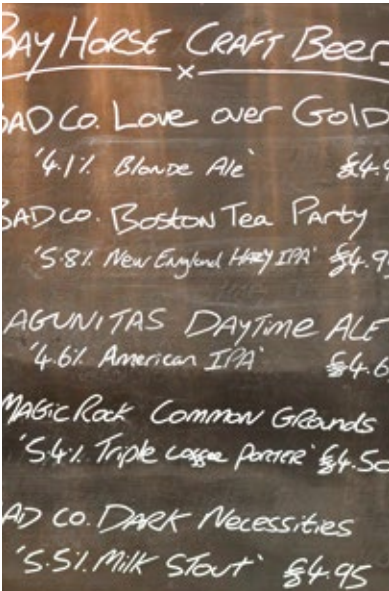 BAY HORSE CRAFT BEER
BAD Co. Love over Gold
'4.1% Blonde Ale' £4.9
BAD CO. Boston Tea Party
'5.8% New England Hazy IPA' £4.9
AGUNITAS DAYTime ALE
'4.6% American IPA' £4.6
MAGIC Rock Common GRounds
'5.4% Triple Coffee PORTER' £4.50
AD CO. DARK Necessities
'5.5% MILK STOUT' £4.95